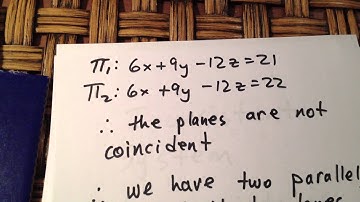 π₁: 6x+9y-12z=21
π₂: 6x+9y-12z=22
∴ the planes are not
coincident
∴ we have two parallel